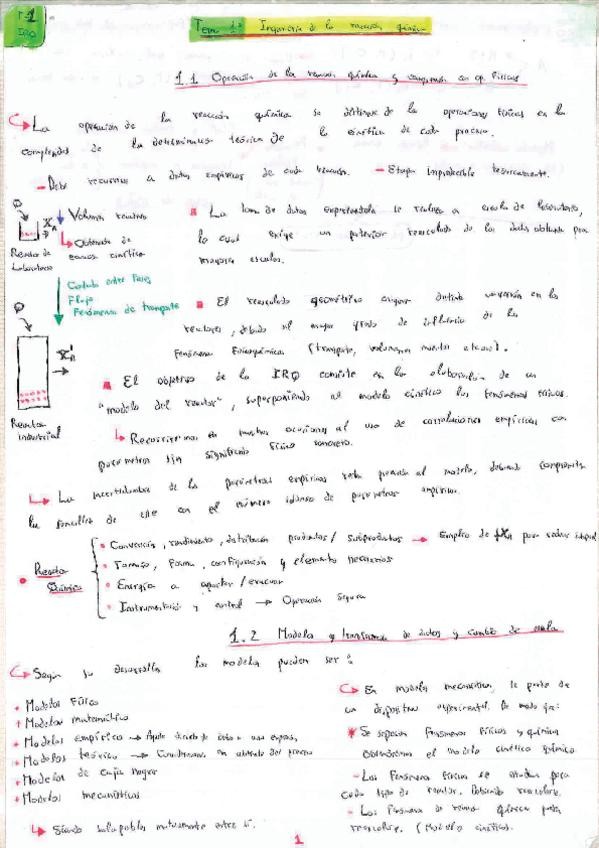 T-1
IRQ
Tema 1: Ingeniería de la reacción química
1.1 Operación de la reacción química y comparación con op. físicas
La operación de la reacción química se distingue de las operaciones físicas en la
complejidad de la determinación teórica de la cinética de cada proceso.
- Debe recurrirse a datos empíricos de cada reacción. - Etapa impredecible teóricamente.
Volumen reactivo
XA
Reactor de
Laboratorio
Obtención de
cinético
■ La toma de datos experimentales se realiza a escala de laboratorio,
lo cual exige un posterior reescalado de los datos obtenidos para
mayores escalas.
Contacto entre fases
Flujo
Fenómenos de transporte
■ El reescalado geométrico distinta conversión en los
reactores, debido al mayor grado de influencia de los
fenómenos fisicoquímicos (transporte, volúmenes muertos).
Reactor
industrial
■ El objetivo de la IRQ consiste en la elaboración de un
"modelo del reactor", superponiendo al modelo cinético los fenómenos físicos.
Recurriremos en muchas ocasiones al uso de correlaciones empíricas con
parámetros sin significado físico concreto.
La incertidumbre de los parámetros empíricos resta precisión al modelo, debiendo
la sencillez de este con el número de parámetros empíricos.
• Reactor
Químico
• Conversión, rendimiento, distribución productos/subproductos → Empleo de para
• Tamaño, forma, configuración y elementos necesarios
• Energía a aportar/evacuar
• Instrumentación y control → Operación segura
1.2 Modelos y transferencia de datos y cambio de escala
Según su desarrollo los modelos pueden ser:
+ Modelos físico
+ Modelos matemático
+ Modelos empírico → Ajuste directo de datos a una expresión
+ Modelos teórico → del proceso
+ Modelos de caja negra
+ Modelos mecanísticos
Siendo solapables mutuamente entre sí.
En modelos mecanísticos, se parte de
un dispositivo experimental, de modo que:
* Se separan fenómenos físicos y químicos
obteniéndose el modelo cinético químico
- Los fenómenos físicos se estudian para
cada tipo de reactor. Debiendo reescalarse.
- Los fenómenos de
reescalarse. (Modelo cinético).
1